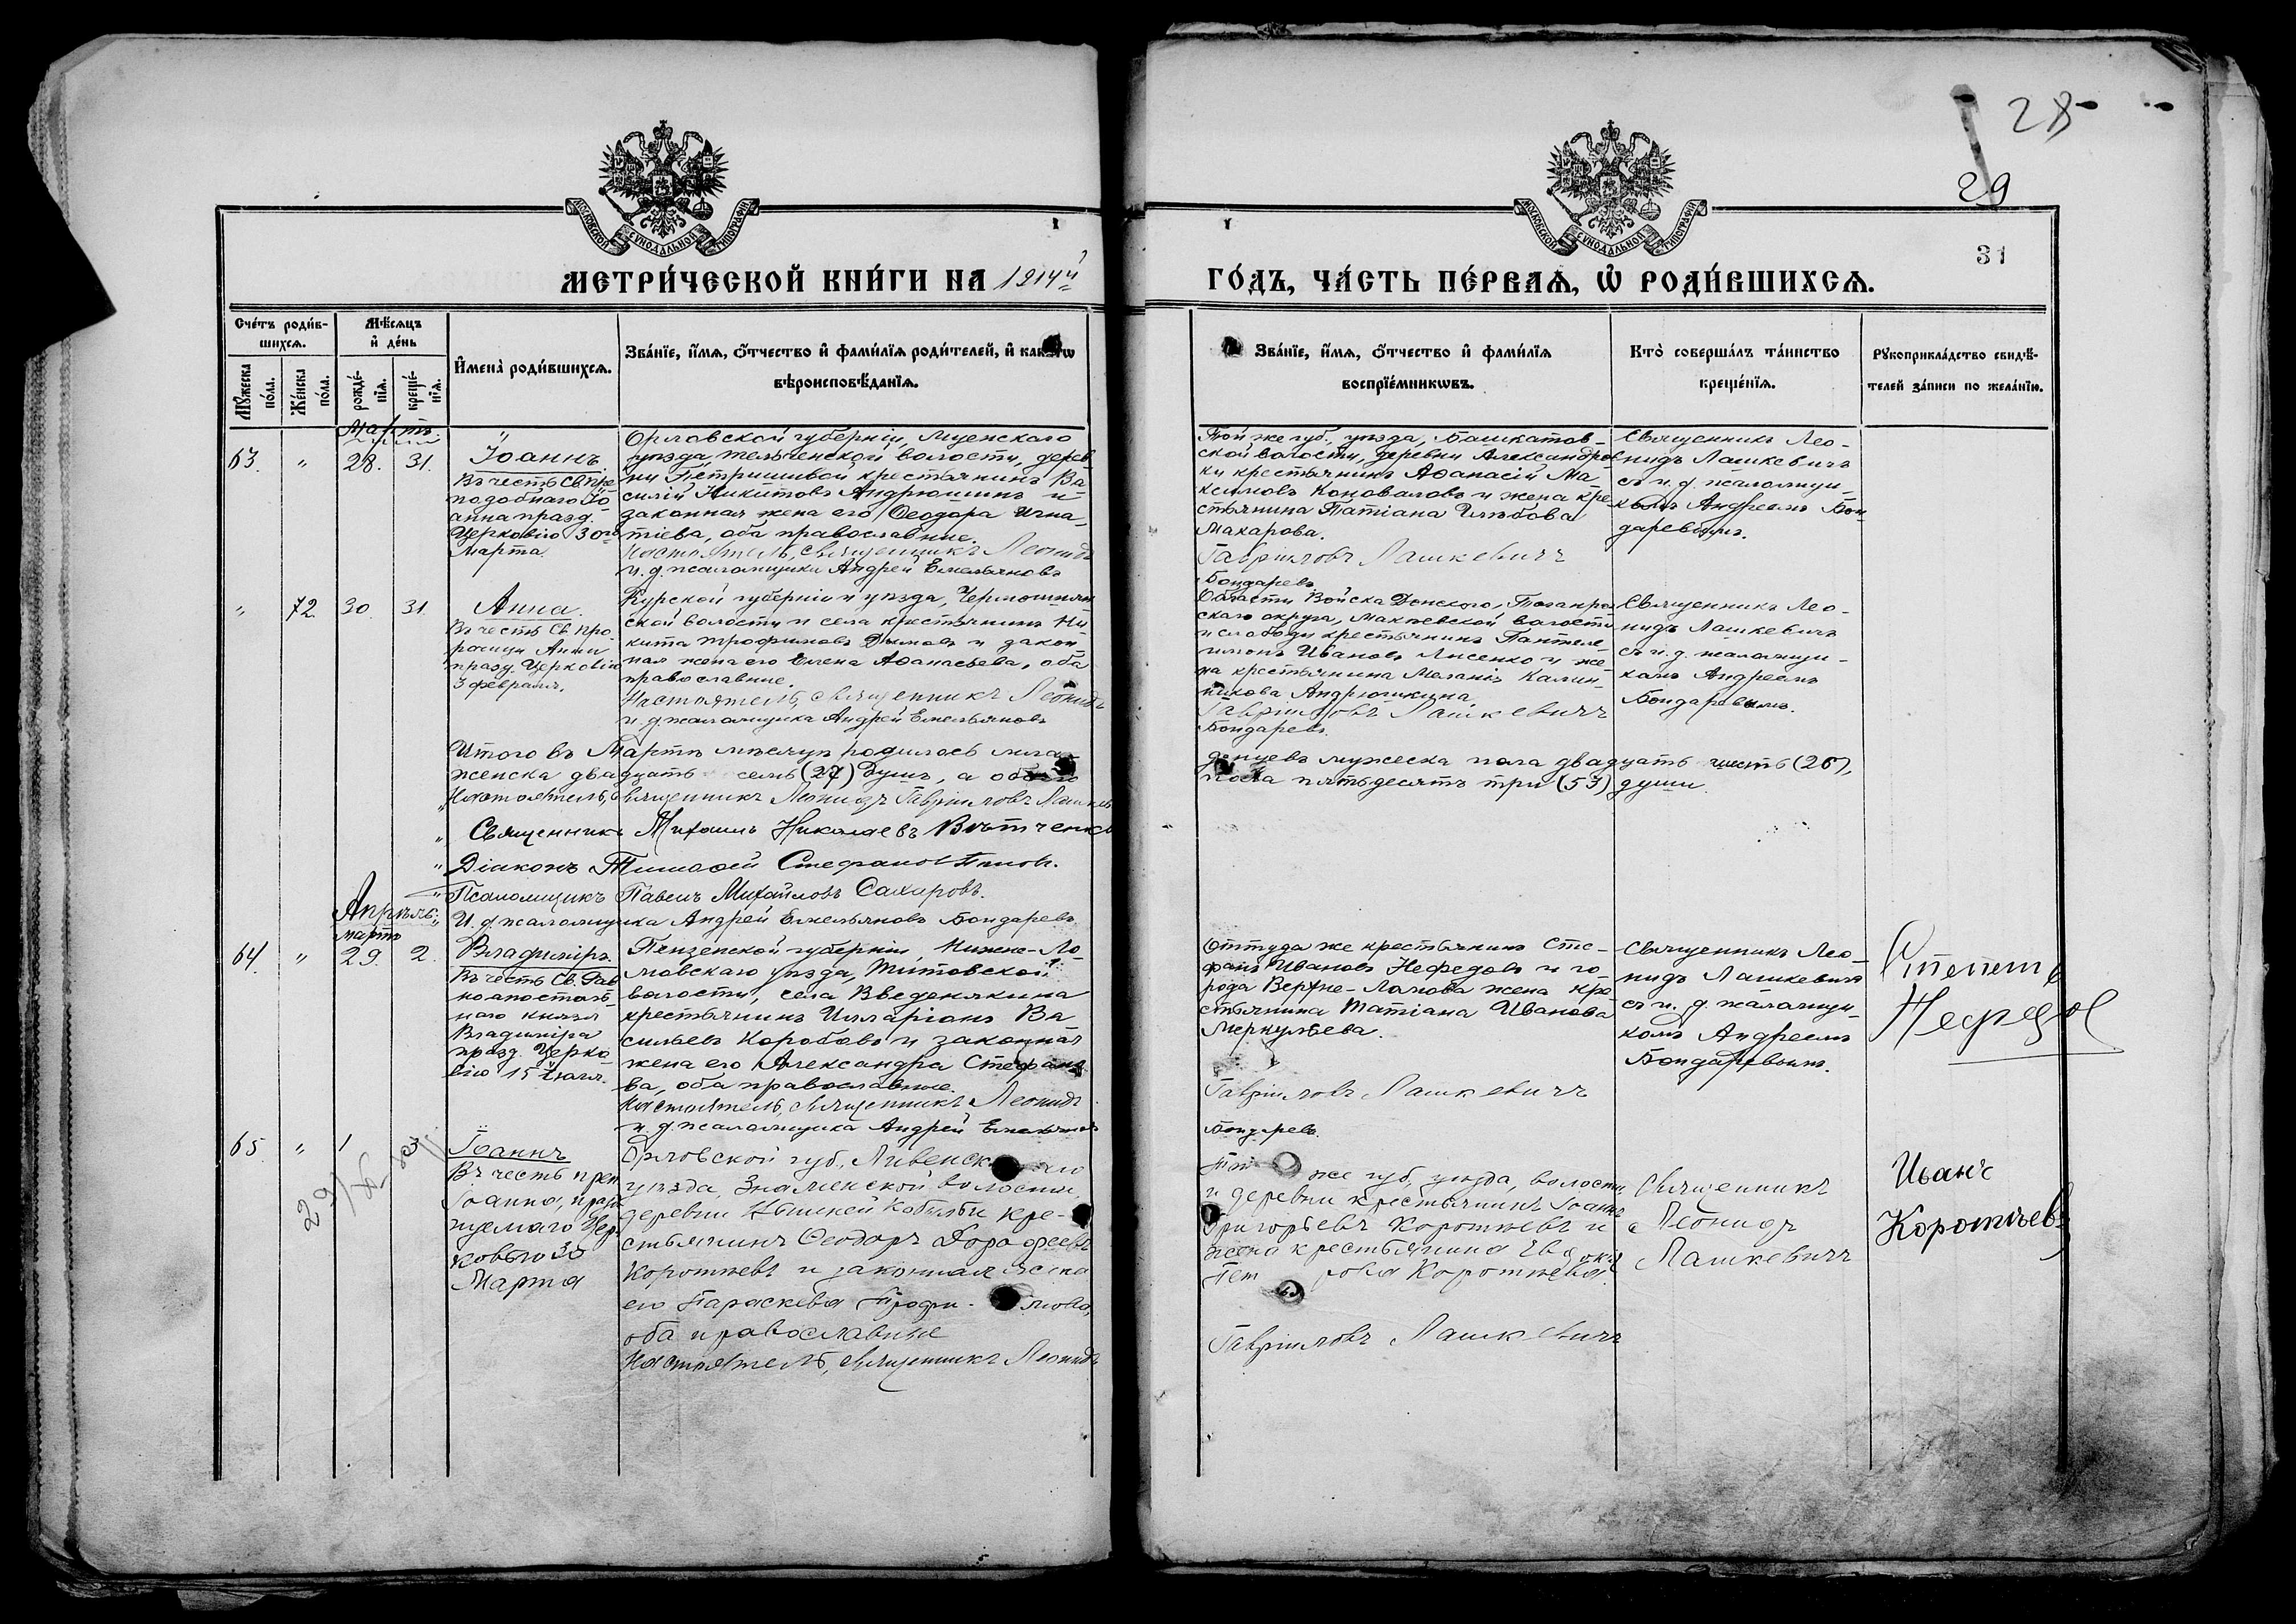 28
29
31
МОСКОВСКОЙ СѴНОДАЛЬНОЙ ТИПОГРАФІИ
МОСКОВСКОЙ СѴНОДАЛЬНОЙ ТИПОГРАФІИ
МЕТРИ́ЧЕСКОЙ КНИ́ГИ НА 1914й
ГО́ДЪ, ЧА́СТЬ ПЕ́РВАѦ, Ѽ РОДИ́ВШИХСѦ.
Сче́тъ роди́в-
шихсѧ.
Мѣ́сѧцъ
и҆ де́нь
Мꙋ́жеска
по́ла.
Же́нска
по́ла.
рожде́-
нїѧ.
креще́-
нїѧ.
И҆мена̀ роди́вшихсѧ.
Зва́нїе, и҆́мѧ, ѻ҆́тчество и҆ фами́лїѧ роди́телей, и҆
вѣроисповѣ́данїѧ.
Зва́нїе, и҆́мѧ, ѻ҆́тчество и҆ фами́лїѧ
воспрїе́мникѡвъ.
Кто̀ соверша́лъ та́инство
креще́нїѧ.
Рꙋкоприкла́дство свидѣ́-
телей за́писи по жела́нїю.
Мартъ
63. " 28. 31.
Іоаннъ
Въ честь Св. Пре
подобнаго Іо-
анна празд.
Церковію 30го
Марта
Орловской губерніи, Мценскаго
уѣзда, Тельченской волости, дерев-
ни крестьянинъ Ва
силій Никитовъ Андрюшинъ и
законная жена его Ѳеодора Игна-
тіева, оба православные.
Настоятель, священникъ Леонидъ
и. д. псаломщика Андрей Емельяновъ
Той же губ., уѣзда, Башкатов-
ской волости, деревни Александров
ки крестьянинъ Аѳанасій Ма-
ксимовъ Коноваловъ и жена кре-
стьянина Татіана Глѣбова
Макарова.
Гавріиловъ Лашкевичъ
Бондаревъ
Священникъ Лео-
нидъ Лашкевичъ
съ и. д. псаломщи-
комъ Андреемъ Бон
даревымъ.
" 72. 30. 31.
Анна.
Въ честь Св. Про-
рочицы Анны
празд. Церковію
3 февраля.
Курской губерніи и уѣзда,
ской волости и села крестьянинъ Ни
кита Трофимовъ Дымовъ и закон-
ная жена его Елена Аѳанасьева, оба
православные.
Настоятель, священникъ Леонидъ
и. д. псаломщика Андрей Емельяновъ
Области Войска Донского, Таганрог
скаго округа, Макѣевской волости
и слободы крестьянинъ Пантеле-
имонъ Ивановъ Лисенко и же-
на крестьянина Меланія Калин-
никова Андрюшкина
Гавріиловъ Лашкевичъ
Бондаревъ.
Священникъ Лео-
нидъ Лашкевичъ
съ и. д. псаломщи-
комъ Андреемъ
Бондаревымъ.
Итого въ Мартѣ мѣсяцѣ родилось мла
денцевъ мужеска пола двадцать шесть (26),
женска двадцать семь (27) душъ, а обоего
пола пятьдесятъ три (53) души.
Настоятель, священникъ Леонидъ Гавріиловъ Лашкев
Священникъ Михаилъ Николаевъ
Діаконъ Тимоѳей Стефановъ
Псаломщикъ Павелъ Михайловъ Сахаровъ.
И. д. псаломщика Андрей Емельяновъ Бондаревъ
Апрѣль
мартъ
64. " 29. 2.
Владиміръ.
Въ честь Св. Рав
ноапостоль-
наго князя
Владиміра
празд. Церко-
вію 15 іюля.
Пензенской губерніи, Нижне-Ло-
мовскаго уѣзда, Титовской
волости, села Введенякина
крестьянинъ Илларіонъ Ва
сильевъ Коробовъ и законная
жена его Александра Стефано
ва, оба православные.
Настоятель, священникъ Леонидъ
и. д. псаломщика Андрей Емельяновъ
Оттуда же крестьянинъ Сте-
фанъ Ивановъ Нефедовъ и го-
рода Верхне-Ломова жена кре-
стьянина Татіана Иванова
Меркульева.
Гавріиловъ Лашкевичъ
Бондаревъ.
Священникъ Лео-
нидъ Лашкевичъ
съ и. д. псаломщи-
комъ Андреемъ
Бондаревымъ.
Нефедов
65 " 1 3
Іоаннъ
Въ честь преп
Іоанна, празд
нуемаго Цер
ковью 30
Марта
Орловской губ., Ливенск аго
уѣзда, Знаменской волости,
деревни Кобыльи кре-
стьянинъ Ѳеодоръ Дороѳеевъ
Коротѣевъ и законная жена
его Параскева Трофи- мова,
оба православные
Настоятель, священникъ Леонидъ
же губ., уѣзда, волости
и деревни крестьянинъ Іоаннъ
Григорьевъ Коротѣевъ и
жена крестьянина Евдокія
Пет рова Коротѣева.
Гавріиловъ Лашкевичъ
Священникъ
Леонидъ
Лашкевичъ
Иванъ
Коротѣевъ